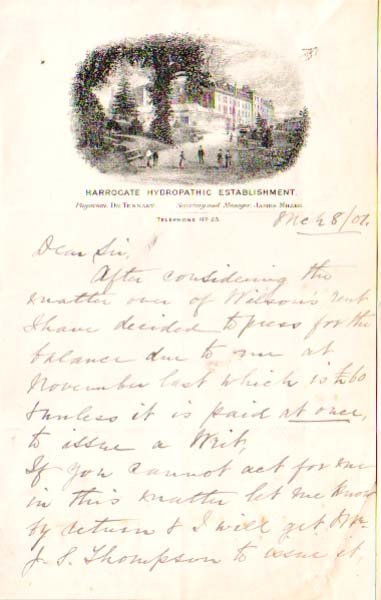 HARROGATE HYDROPATHIC ESTABLISHMENT.
Physician. DR. TENNANT. Secretary and Manager. JAMES MILLER.
TELEPHONE Nº 25.
8/02.
Dear Sir,
After considering the
matter over of Wilson's rent
I have decided to press for the
balance due to me at
November last which is £60
& unless it is paid at once,
to issue a Writ,
If you cannot act for me
in this matter let me know
by return & I will get Mr
J. S. Thompson to issue it.